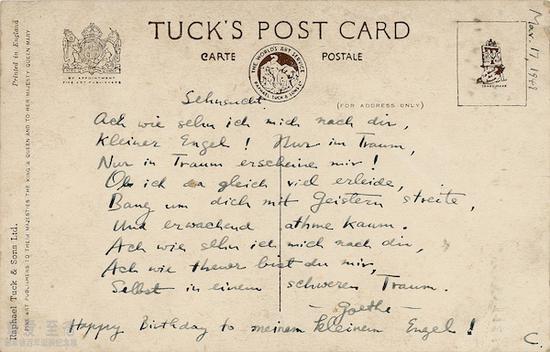 TUCK'S POST CARD
CARTE POSTALE
(FOR ADDRESS ONLY)
BY APPOINTMENT
THE WORLD'S ART SERVICE
RAPHAEL TUCK & SONS LTD
TRADE MARK
Mar. 17, 1942
Printed in England
FINE ART PUBLISHERS TO THEIR MAJESTIES THE KING & QUEEN AND TO HER MAJESTY QUEEN MARY
Raphael Tuck & Sons Ltd.
Sehnsucht.
Ach wie sehn ich mich nach dir,
Kleiner Engel! Nur im Traum,
Nur in Traum erscheine mir!
Ob ich da gleich viel erleide,
Bang um dich mit Geistern streite,
Und erwachend athme kaum.
Ach wie sehn ich mich nach dir,
Ach wie theuer bist du mir,
Selbst in einem schweren Traum.
- Goethe -
Happy Birthday to meinem kleinem Engel!
C.